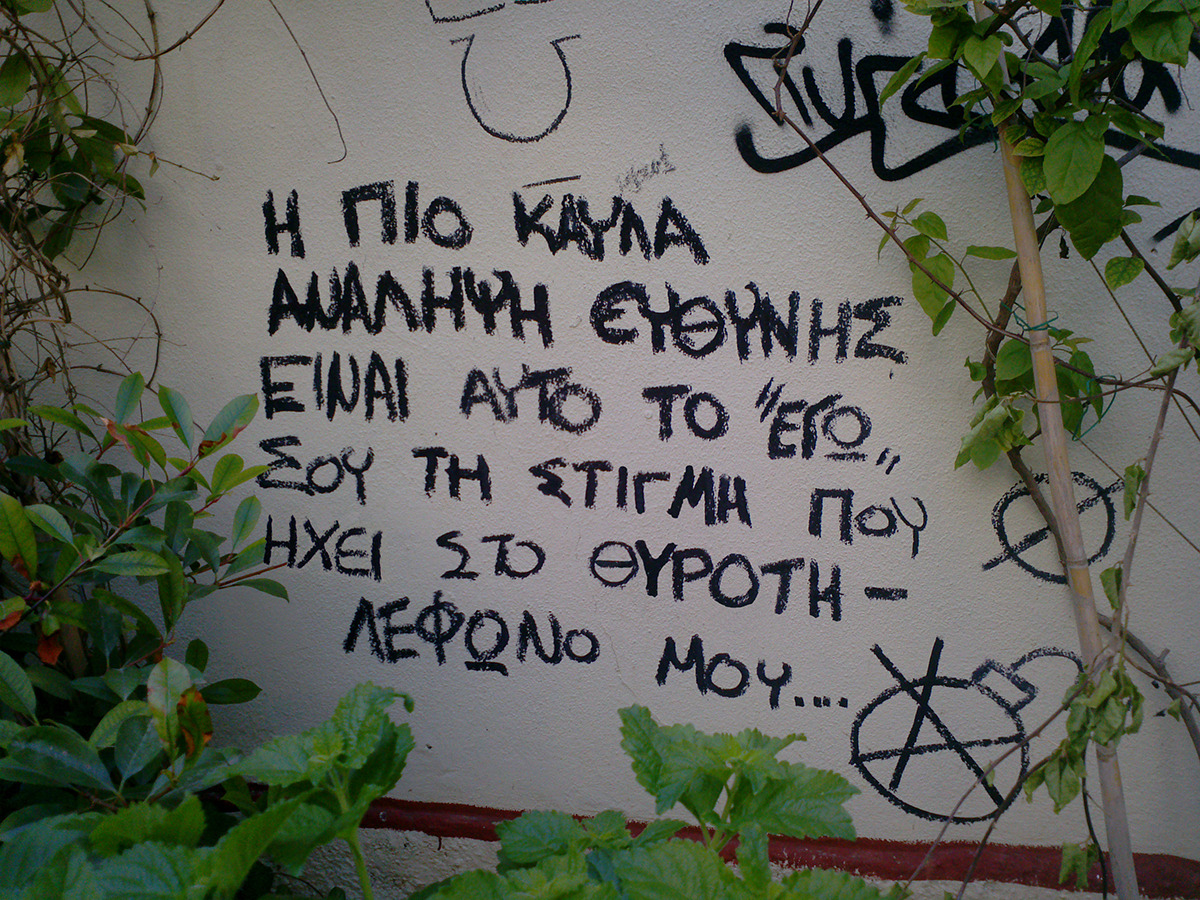 Η ΠΙΟ ΚΑΥΛΑ
ΑΝΑΛΗΨΗ ΕΥΘΥΝΗΣ
ΕΙΝΑΙ ΑΥΤΟ ΤΟ "ΕΓΩ„
ΣΟΥ ΤΗ ΣΤΙΓΜΗ ΠΟΥ
ΗΧΕΙ ΣΤΟ ΘΥΡΟΤΗ-
ΛΕΦΩΝΟ ΜΟΥ....